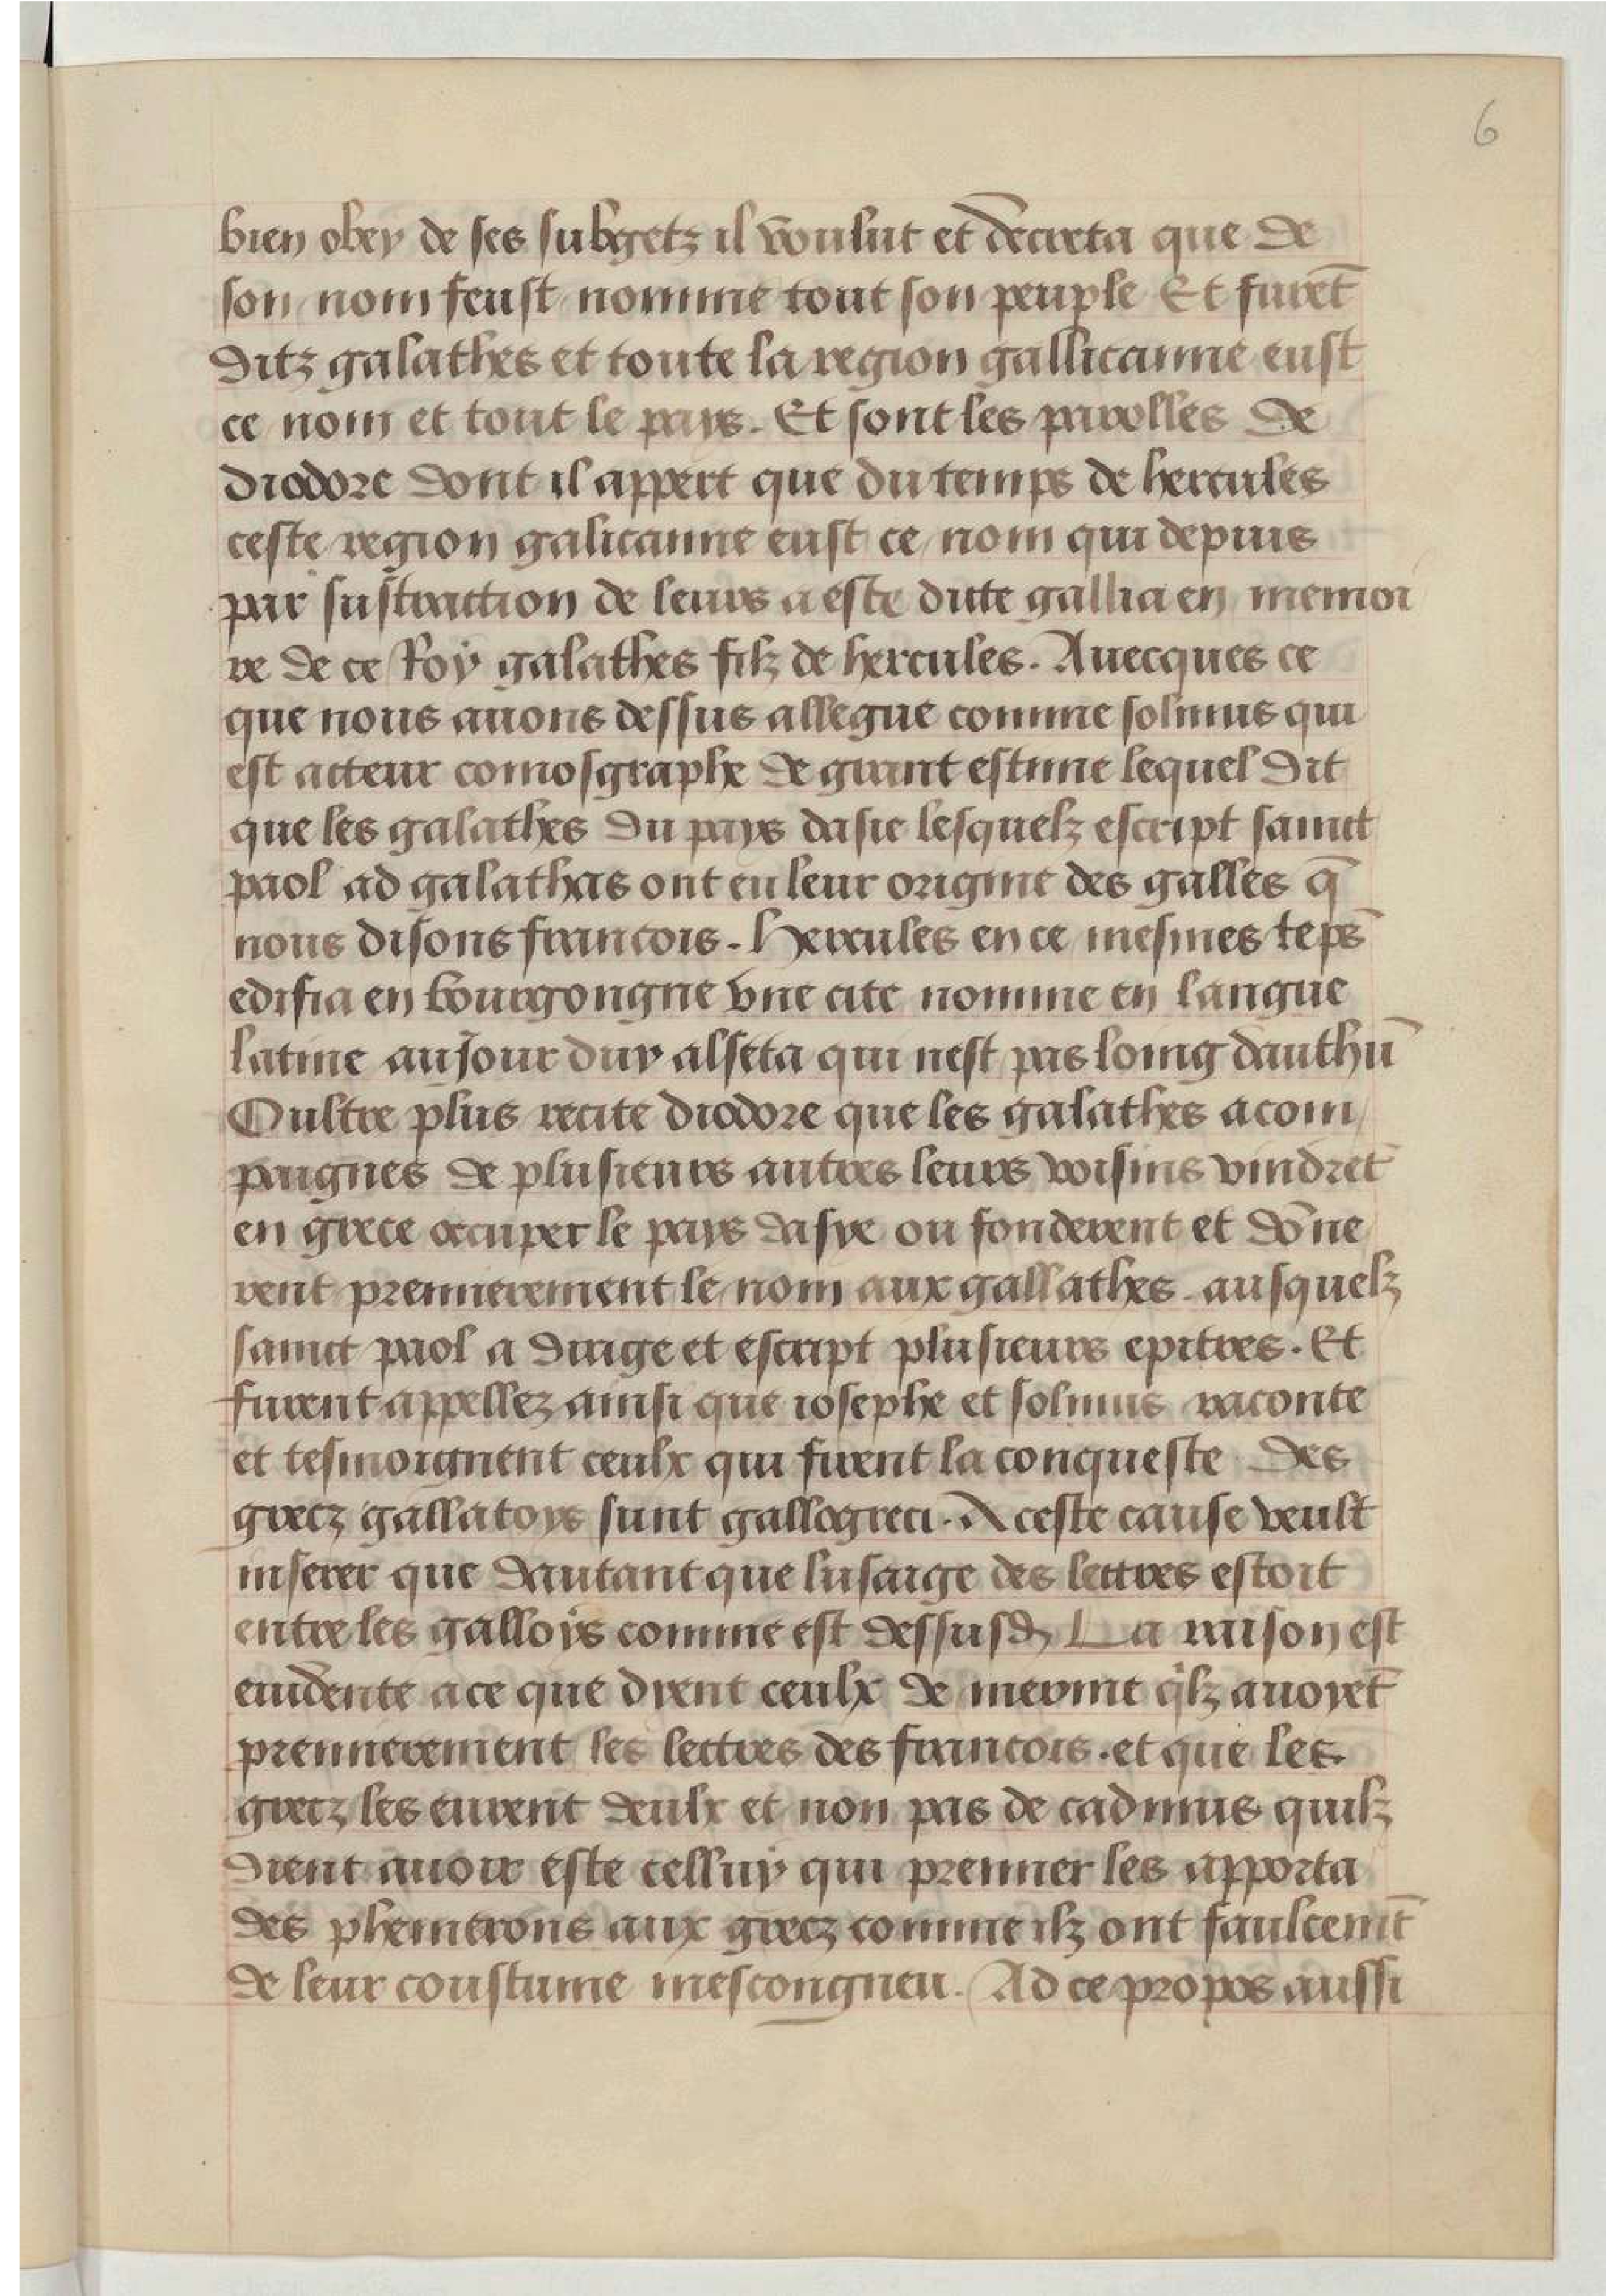 6
bien obey de ses subgetz il voulut et decreta que de
son nom feust nomme tout son peuple Et furēt
ditz galathes et toute la region gallicanne eust
ce nom et tout le pays. Et sont les parolles de
diodore dont il appert que du temps de hercules
ceste region galicanne eust ce nom qui depuis
par sustraction de leurs a este dicte gallia en memoi
re de ce Roy galathes filz de hercules. Auecques ce
que nous auons dessus allegue comme solinus qui
est acteur comosgraphe de grant estime lequel dit
que les galathes du pays dasie lesquelz escript sainct
paol ad galathas ont eu leur origine des galles q̄
nous disons francois. Hercules en ce mesmes tēps
edifia en bourgongne vne cite nomme en langue
latine aujour duy alseta qui nest pas loing dauthū
Oultre plus recite diodore que les galathes acom
paignes de plusieurs autres leurs voisins vindrēt
en grece occuper le pays dasye ou fonderent et dōne
rent premierement le nom aux gallathes. ausquelz
sainct paol a dirige et escript plusieurs epitres. Et
furent appellez ainsi que iosephe et solinus raconte
et tesmoignent ceulx qui firent la conqueste des
grecz gallatoys sunt gallogreci. A ceste cause veult
inferer que dautant que lusaige des lettres estoit
entre les galloys comme est dessusd La raison est
euidente a ce que dient ceulx de meonie q̄lz auoyēt
premierement les lettres des francois. et que les
grecz les eurent deulx et non pas de cadmus quilz
dient auoir este celluy qui premier les apporta
des phenicrons aux grecz comme ilz ont faulcemt̄
de leur coustume mescongneu. Ad ce propos aussi